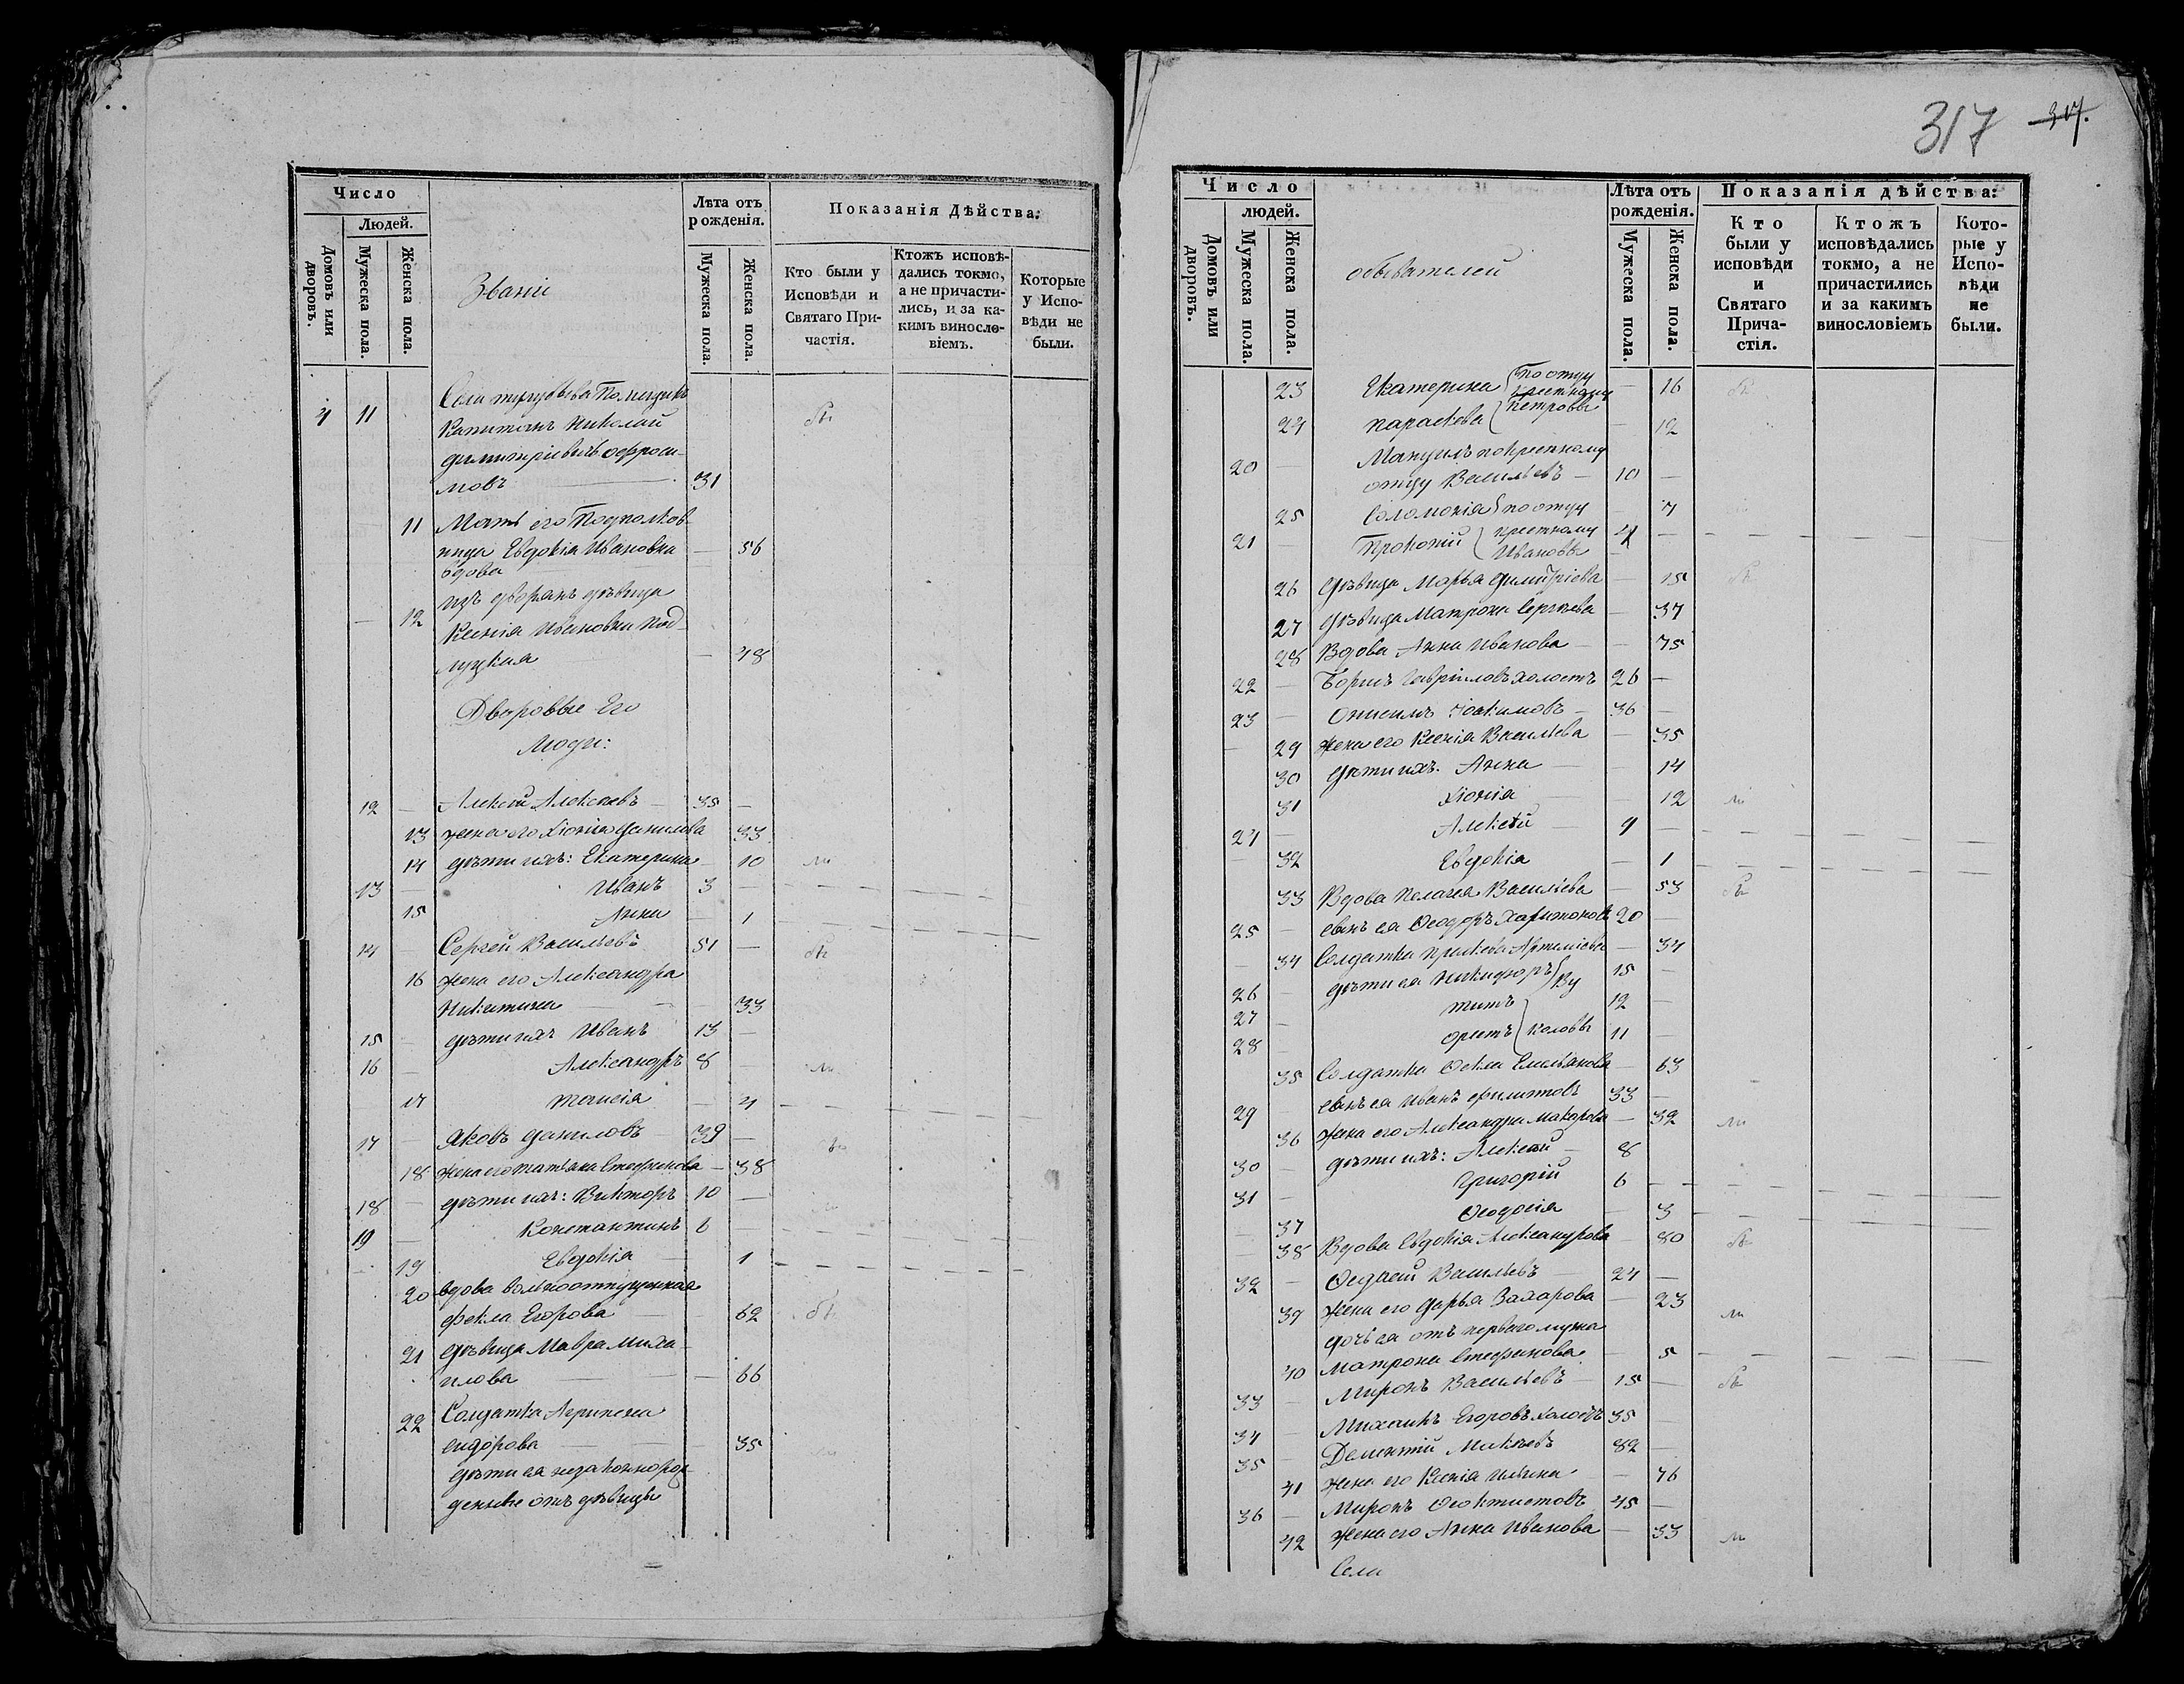 Число
Людей.
Домовъ или дворовъ.
Мужеска пола.
Женска пола.
Званiи
Лѣта отъ рожденія.
Мужеска пола.
Женска пола.
Показанія Дѣйства:
Кто были у Исповѣди и Святаго Причастія.
Ктожъ исповѣдались токмо, а не причастились, и за какимъ винословіемъ.
Которые у Исповѣди не были.
4 11 Капитанъ Николай
Димитріевичь Офроси-
мовъ 31
11 Мать его Подполков-
ница Евдокія Ивановна 56
вдова
изъ дворянъ дѣвица
12 Ксенія Ивановна Под-
луцкая 48
Дворовые Его
Люди:
12 Алексѣй Алексѣевъ 35
13 жена его Хіонія Данилова 33
14 дѣти ихъ: Екатерина 10
13 Иванъ 3
15 Анна 1
14 Сергей Васильевъ 51
16 жена его Александра
Никитина 33
15 дѣти ихъ Иванъ 13
16 Александръ 8
17 Таисія 4
17 Яковъ Даниловъ 39
18 жена его Татьяна Стефанова 38
18 дѣти ихъ: Викторъ 10
19 Константинъ 6
19 Евдокія 1
20 вдова вольноотпущенная
Фекла Егорова 62
21 дѣвица Мавра Миха-
илова 66
22 Солдатка Агрипена
Сидорова 35
дѣти ея незаконнорож-
денные отъ дѣвицы
317 317.
Число
людей.
Домовъ или дворовъ.
Мужеска пола.
Женска пола.
обывателей
Лѣта отъ рожденія.
Мужеска пола.
Женска пола.
Показанія дѣйства:
Кто были у исповѣди и Святаго Причастія.
Ктожъ исповѣдались токмо, а не причастились и за какимъ винословіемъ
Которые у Исповѣди не были.
23 Екатерина по отцу 16
крестному
24 Параскева Петровы 12
20 Мануилъ по крестному
отцу Васильевъ 10
25 Соломонія по отцу 7
21 Прокопій крестному 4
Ивановы
26 дѣвица Марья Димитріева 15
27 дѣвица Матрона Сергѣева 37
28 Вдова Анна Иванова 75
22 Борисъ Гавріиловъ холостъ 26
23 Онисимъ Іоакимовъ 36
29 жена его Ксенія Васильева 35
30 дѣти ихъ: Анна 14
31 Хіонія 12
24 Алексѣй 4
32 Евдокія 1
33 Вдова Пелагея Васильева 53
25 сынъ ея Ѳеодоръ Харитоновъ 20
34 Солдатка Праскева Артеміева 34
26 дѣти ея Никифоръ Ву 15
27 Титъ 12
28 Орестъ коловы 11
35 Солдатка Ѳекла Емельянова 63
29 сынъ ея Иванъ Филиповъ 33
36 жена его Александра Макарова 32
30 дѣти ихъ: Алексѣй 8
31 Григорій 6
37 Ѳеодосія 3
38 Вдова Евдокія Александрова 80
32 Ѳедосей Васильевъ 24
39 жена его Дарья Захарова 23
дочь ея отъ перваго мужа
40 Матрона Стефанова 5
33 Миронъ Васильевъ 15
34 Михаилъ Егоровъ холостъ 35
35 Дементій Макѣевъ 82
41 жена его Ксенія Ильина 76
36 Миронъ Ѳеоктистовъ 45
42 жена его Анна Иванова 33
Села